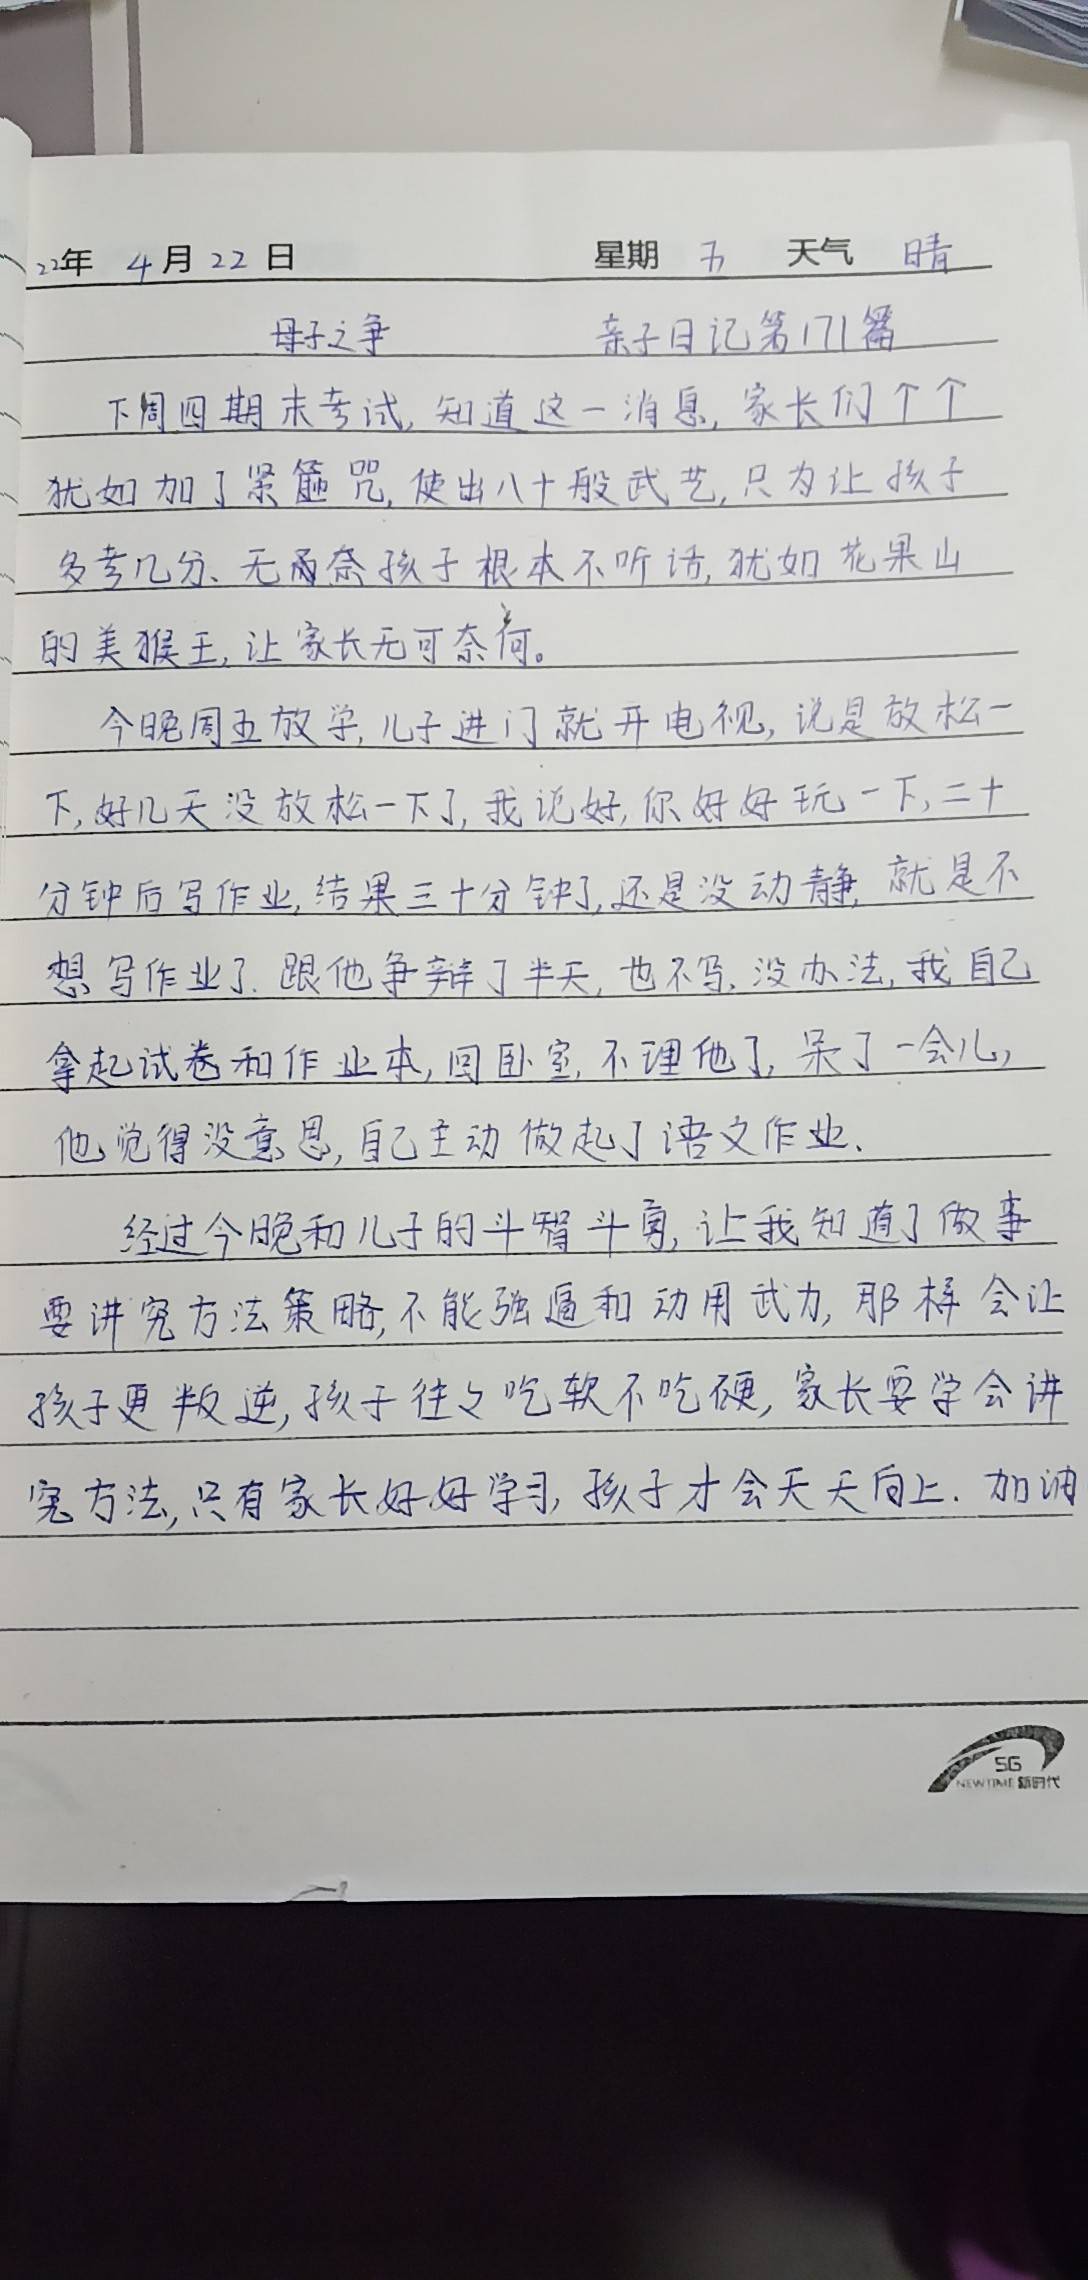 22年 4月22日 星期 五 天气 晴
母子之争 亲子日记第171篇
下周四期末考试,知道这一消息,家长们个个
犹如加了紧箍咒,使出八十般武艺,只为让孩子
多考几分、无奈孩子根本不听话,犹如花果山
的美猴王,让家长无可奈何。
今晚周五放学,儿子进门就开电视,说是放松一
下,好几天没放松一下了,我说好,你好好玩一下,二十
分钟后写作业,结果三十分钟了,还是没动静,就是不
想写作业了.跟他争辩了半天,也不写,没办法,我自己
拿起试卷和作业本,回卧室,不理他了,呆了一会儿,
他觉得没意思,自己主动做起了语文作业、
经过今晚和儿子的斗智斗勇,让我知道了做事
要讲究方法策略,不能强逼和动用武力,那样会让
孩子更叛逆,孩子往々吃软不吃硬,家长要学会讲
究方法,只有家长好好学习,孩子才会天天向上.加油
5G
NEWTIME 新时代